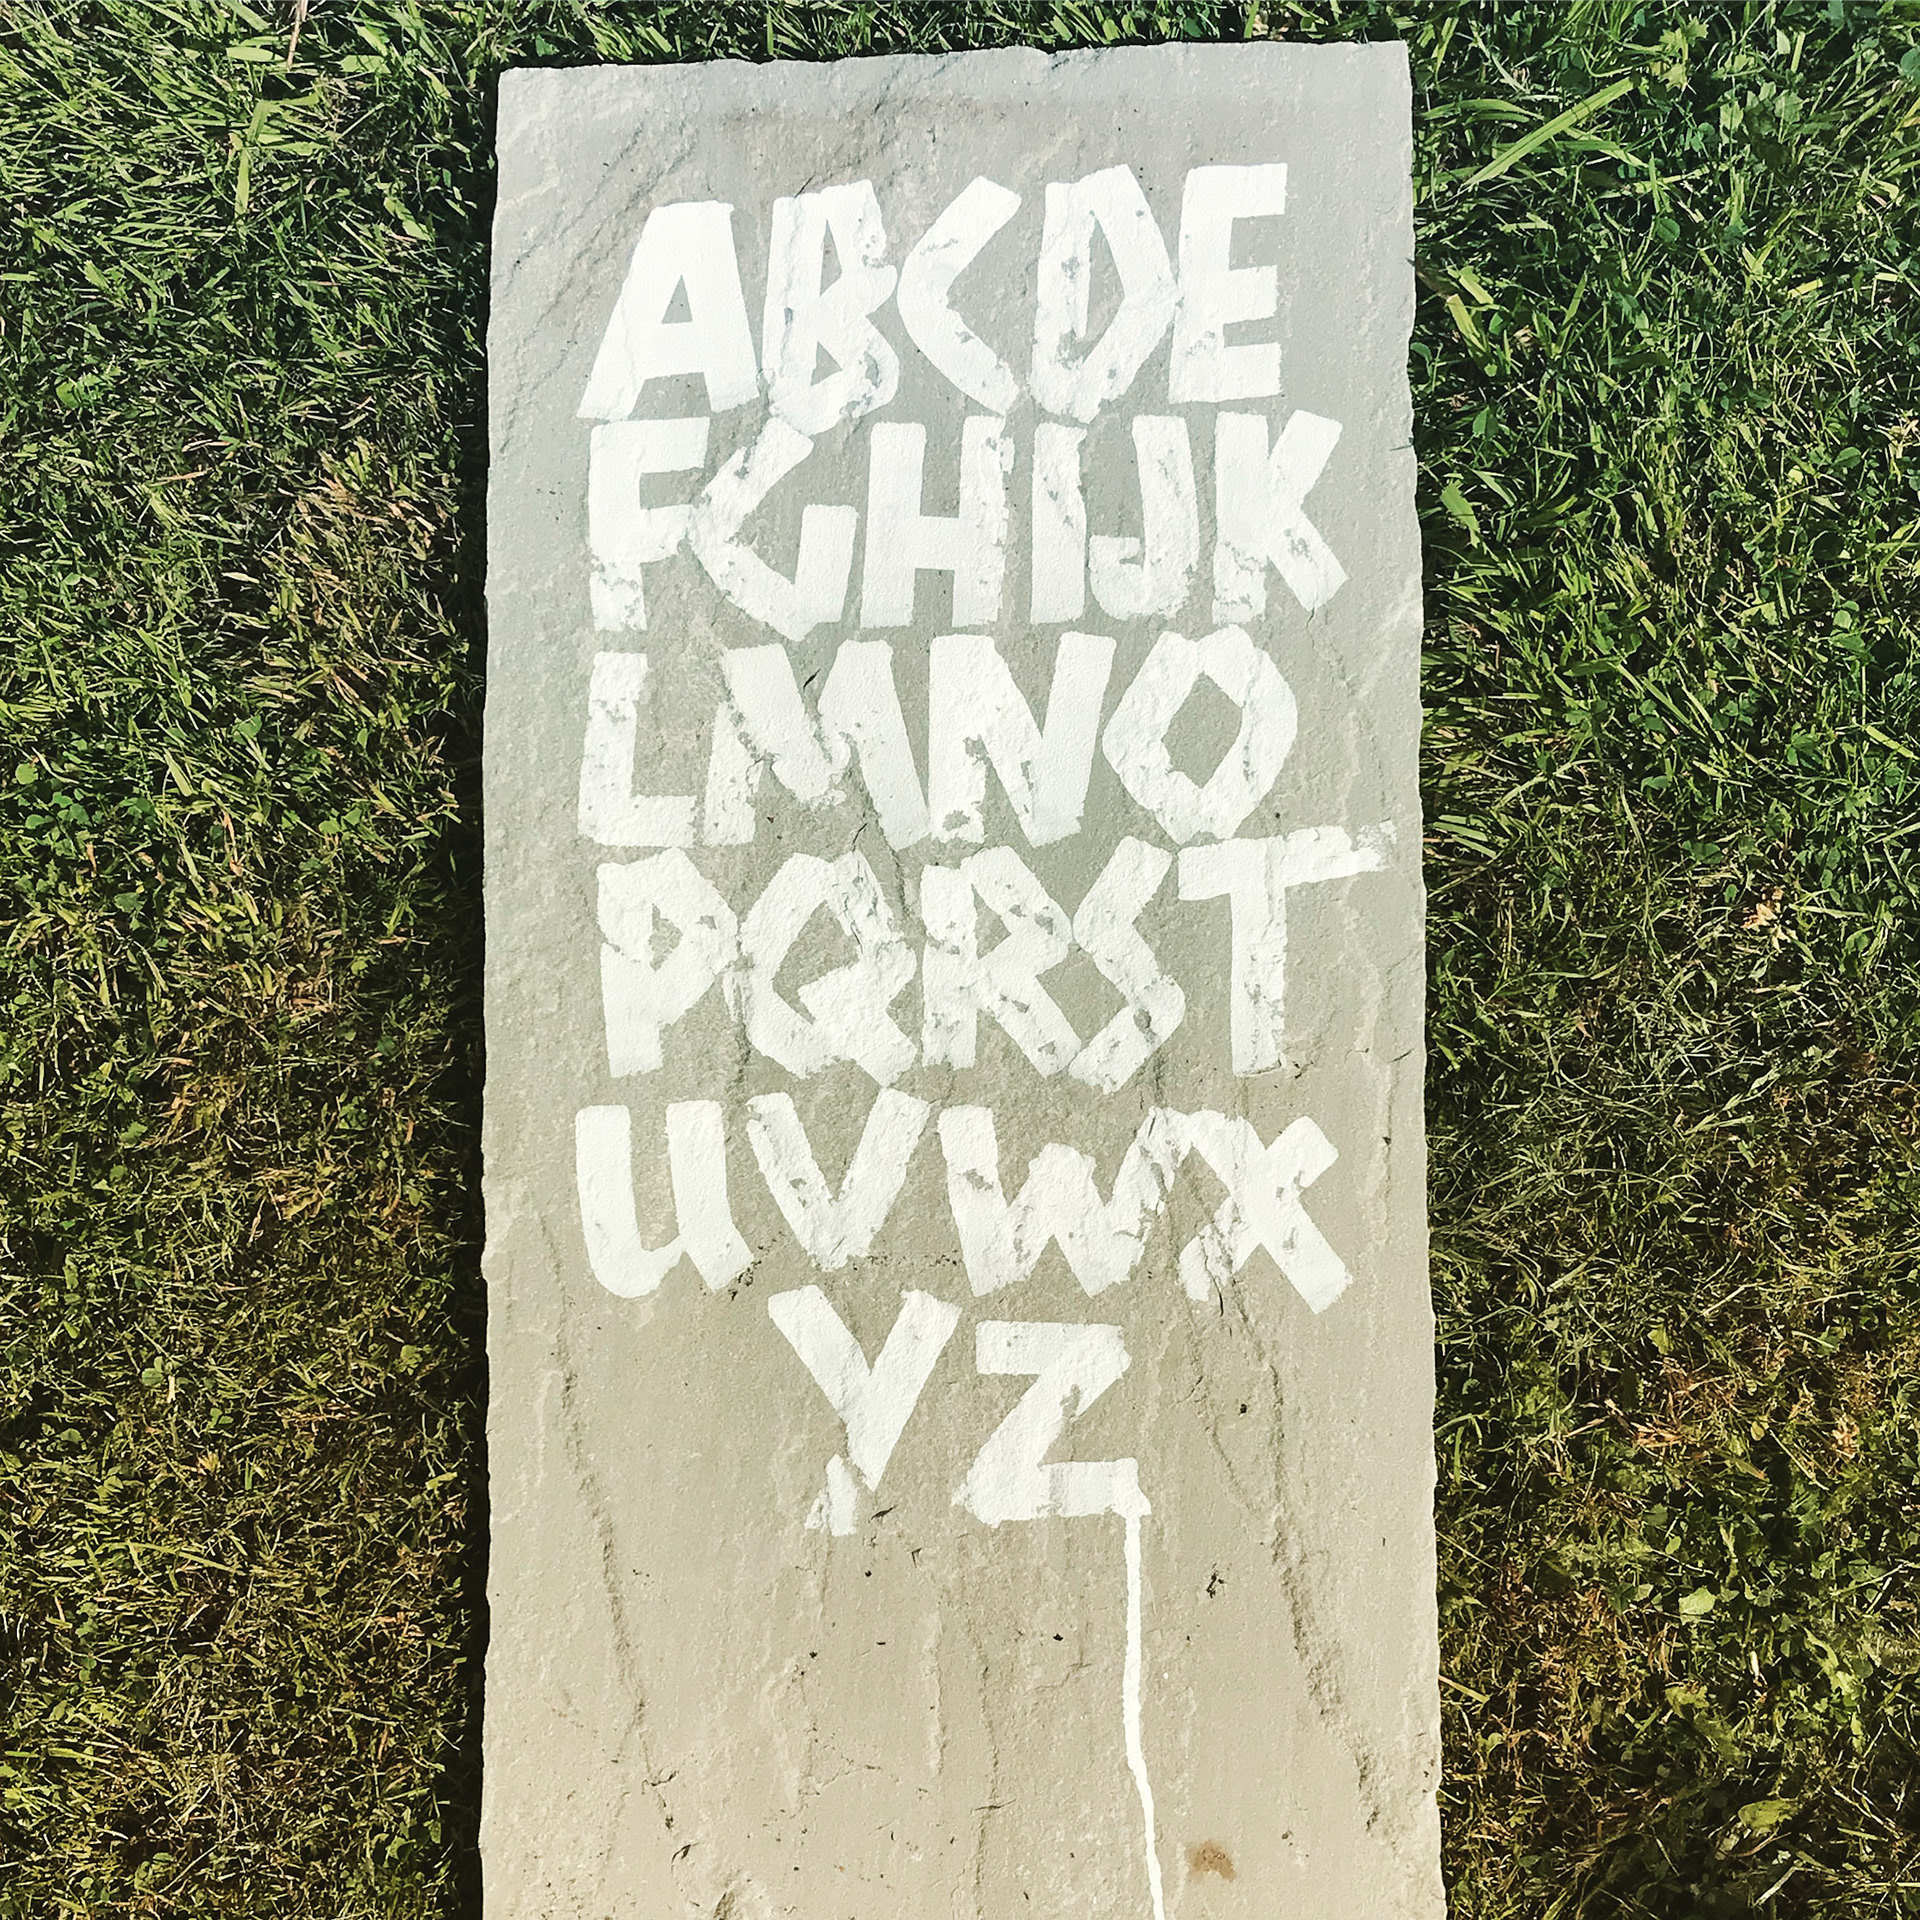 ABCDE
FGHIJK
LMNO
PQRST
UVWX
YZ